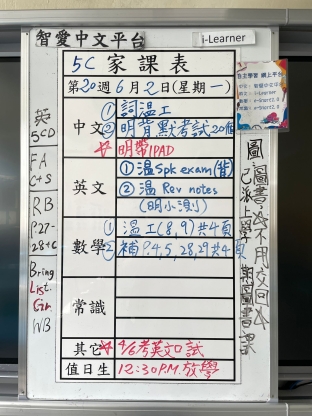 智愛中文平台
i-Learner
5C 家課表
第20週6月2日(星期一)
中文
① 詞温工
② 明背默考試20個
☆ 明帶IPAD
英文
① 温Spk exam(背)
② 温 Rev notes
(明小測)
數學
① 温工(8,9)共4頁
② 補P.4,5,28,29共4頁
常識
其它
☆ 4/6考英文口試
值日生
12:30P.M.放學
英
5CD
FA
C+S
RB
P.27-
28+C
Bring
List.
Gr.
WB
自主學習 網上平台
圖
圖書:今不用交回